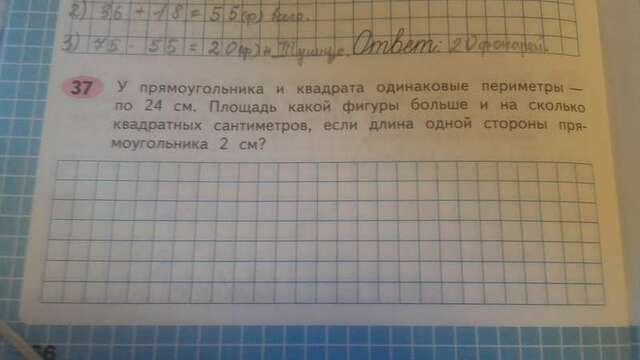 2) 36 + 18 = 55(ф) было.
3) 75 - 55 = 20(ф) Ответ: 20 фонарей.
37 У прямоугольника и квадрата одинаковые периметры —
по 24 см. Площадь какой фигуры больше и на сколько
квадратных сантиметров, если длина одной стороны пря-
моугольника 2 см?